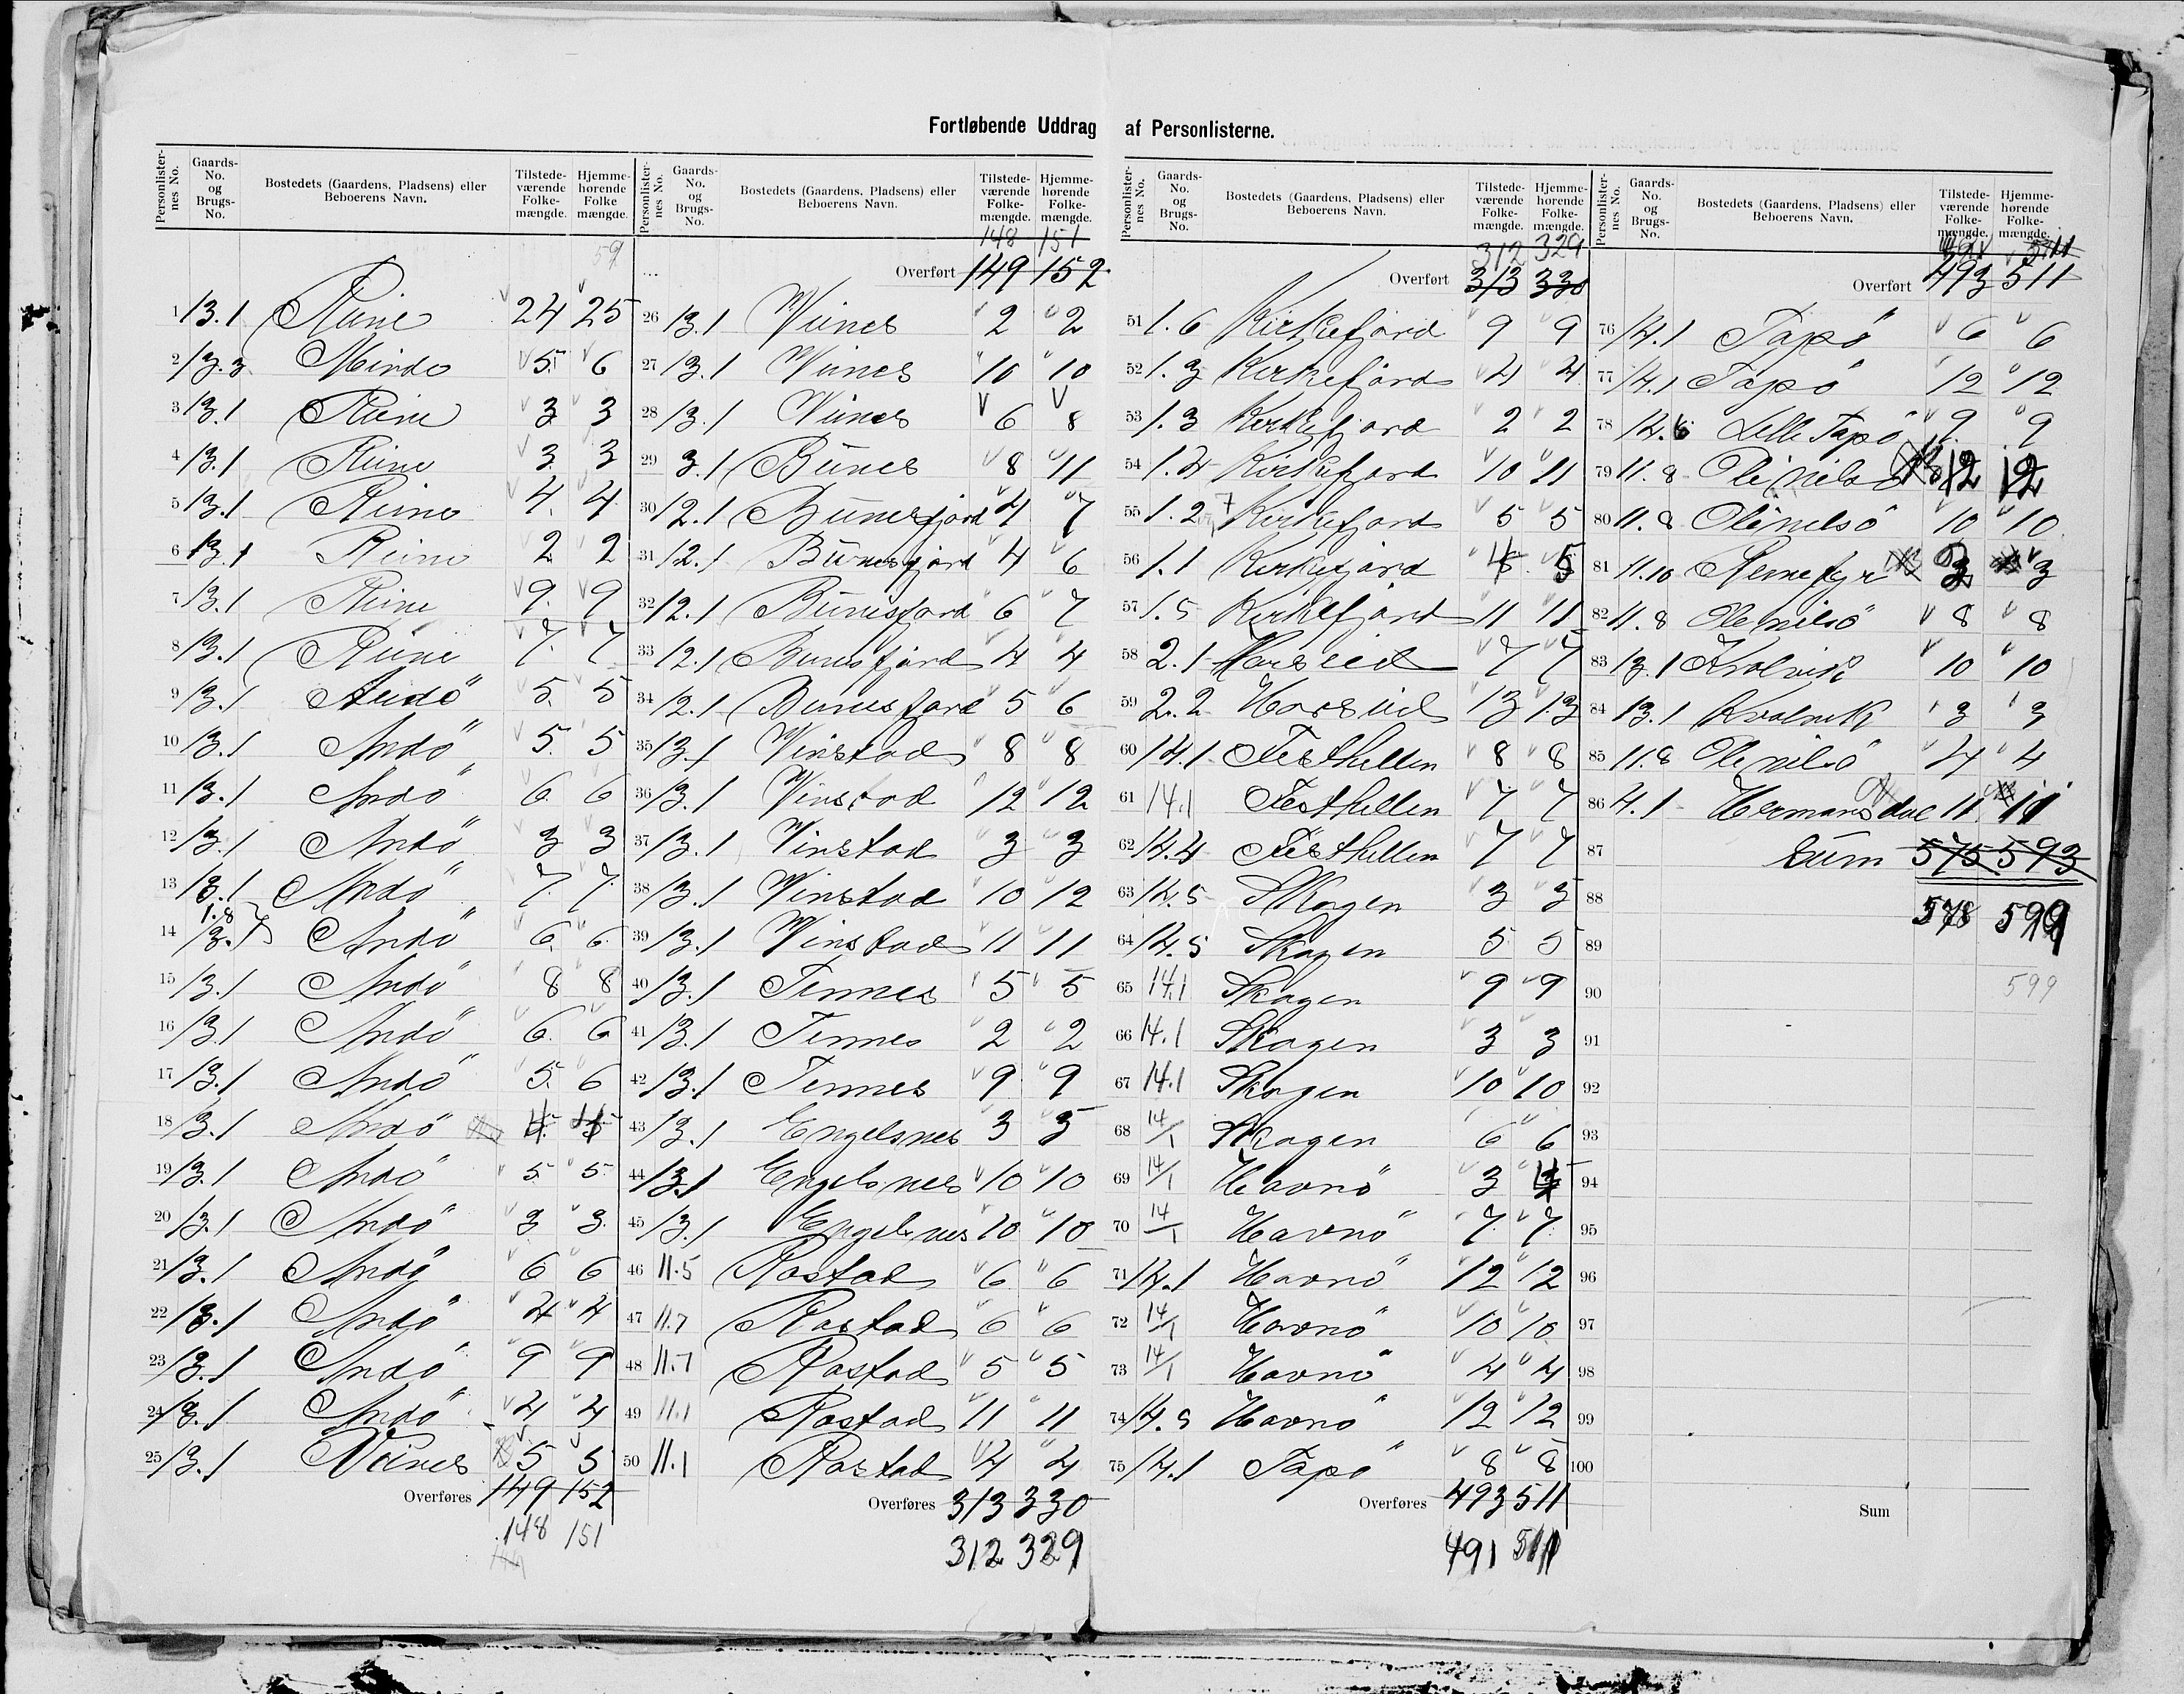 Fortløbende Uddrag af Personlisterne.
Personlister-nes No. Gaards-No. og Brugs-No. Bostedets (Gaardens, Pladsens) eller Beboerens Navn. Tilstede-værende Folke-mængde. Hjemme-hørende Folke mængde.
59
1 13.1 Reine 24 25
2 13.3 Minde 5 6
3 13.1 Reine 3 3
4 13.1 Reine 3 3
5 13.1 Reine 4 4
6 13.1 Reine 2 2
7 13.1 Reine 9 9
8 13.1 Reine 7 7
9 13.1 Andö 5 5
10 13.1 Andö 5 5
11 13.1 Andö 6 6
12 13.1 Andö 3 3
13 13.1 Andö 7 7
14 1.8 13.1 Andö 6 6
15 13.1 Andö 8 8
16 13.1 Andö 6 6
17 13.1 Andö 5 6
18 13.1 Andö 4 4
19 13.1 Andö 5 5
20 13.1 Andö 3 3
21 13.1 Andö 6 6
22 13.1 Andö 4 4
23 13.1 Andö 9 9
24 13.1 Andö 4 4
25 13.1 Viines 5 5
Overføres 149 152
148 151
Personlister-nes No. Gaards-No. og Brugs-No. Bostedets (Gaardens, Pladsens) eller Beboerens Navn. Tilstede-værende Folke-mængde. Hjemme-hørende Folke-mængde.
148 151
Overført 149 152
26 13.1 Viines 2 2
27 13.1 Viines 10 10
28 13.1 Viines 6 8
29 3.1 Bunes 8 11
30 12.1 Bunesfjord 4 7
31 12.1 Bunesfjord 4 6
32 12.1 Bunesfjord 6 7
33 12.1 Bunesfjord 4 4
34 12.1 Bunesfjord 5 6
35 13.1 Vinstad 8 8
36 13.1 Vinstad 12 12
37 13.1 Vinstad 3 3
38 13.1 Vinstad 10 12
39 13.1 Vinstad 11 11
40 13.1 Tennes 5 5
41 13.1 Tennes 2 2
42 13.1 Tennes 9 9
43 13.1 Engelsnes 3 3
44 13.1 Engelsnes 10 10
45 13.1 Engelsnes 10 10
46 11.5 Rostad 6 6
47 11.7 Rostad 6 6
48 11.7 Rostad 5 5
49 11.1 Rostad 11 11
50 11.1 Rostad 4 4
Overføres 313 330
312 329
Personlister-nes No. Gaards-No. og Brugs-No. Bostedets (Gaardens, Pladsens) eller Beboerens Navn. Tilstede-værende Folke-mængde. Hjemme-hørende Folke-mængde.
312 329
Overført 313 330
51 1.6 Kirkefjord 9 9
52 1.3 Kirkefjord 4 4
53 1.3 Kirkefjord 2 2
54 1.4 Kirkefjord 10 11
55 1.2 7 Kirkefjord 5 5
56 1.1 Kirkefjord 4 5
57 1.5 Kirkefjord 11 11
58 2.1 Horseid 7 7
59 2.2 Horseid 13 13
60 14.1 Festhellen 8 8
61 14.1 Festhellen 7 7
62 14.4 Festhellen 7 7
63 14.5 Skagen 3 3
64 14.5 Skagen 5 5
65 14.1 Skagen 9 9
66 14.1 Skagen 3 3
67 14.1 Skagen 10 10
68 14/1 Skagen 6 6
69 14/1 Havnö 3 4
70 14/1 Havnö 7 7
71 14.1 Havnö 12 12
72 14/1 Havnö 10 10
73 14/1 Havnö 4 4
74 14.5 Havnö 12 12
75 14.1 Tapö 8 8
Overføres 493 511
491 511
Personlister-nes No. Gaards-No. og Brugs-No. Bostedets (Gaardens, Pladsens) eller Beboerens Navn. Tilstede-værende Folke-mængde. Hjemme-hørende Folke-mængde.
491 511
Overført 493 511
76 14.1 Tapö 6 6
77 14.1 Tapö 12 12
78 14.6 Lille Tapö 9 9
79 11.8 Olenilsö 12 12
80 11.8 Olenilsö 10 10
81 11.10 Reinefyr 2 3
82 11.8 Olenilsö 8 8
83 13.1 Kvalvik 10 10
84 13.1 Kvalvik 3 3
85 11.8 Olenilsö 4 4
86 4.1 Hermansdal 11 11
87 Sum 575 593
88 578 599
89
90 599
91
92
93
94
95
96
97
98
99
100
Sum